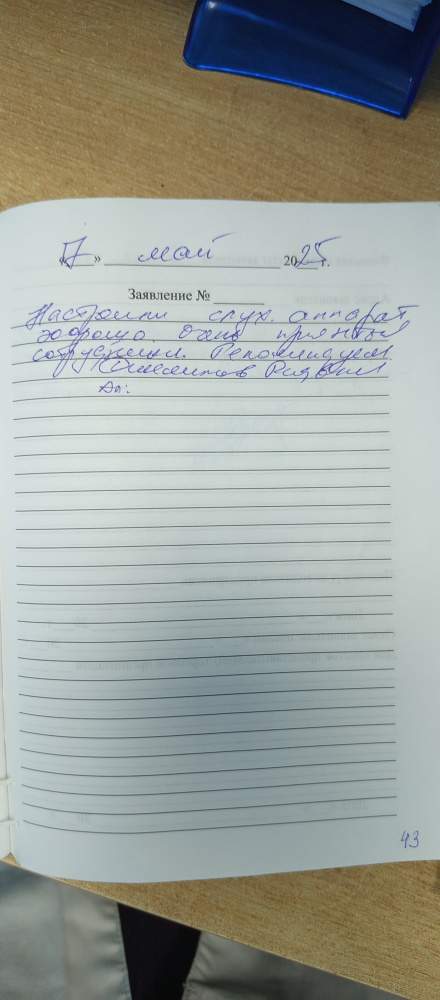 «7» май 2025 г.
Заявление №
Настроили слух. аппарат
хорошо. Очень приятные
сотрудники. Рекомендуем
43